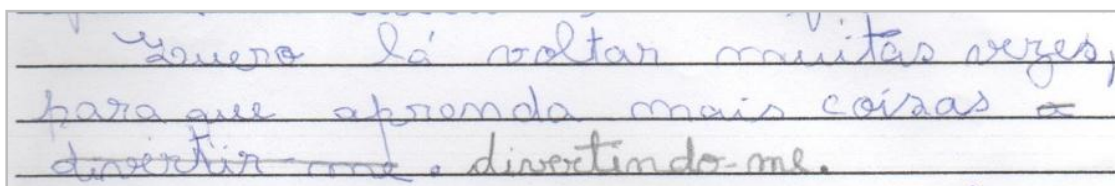 Quero lá voltar muitas vezes,
para que aprenda mais coisas a
divertir-me. divertindo-me.